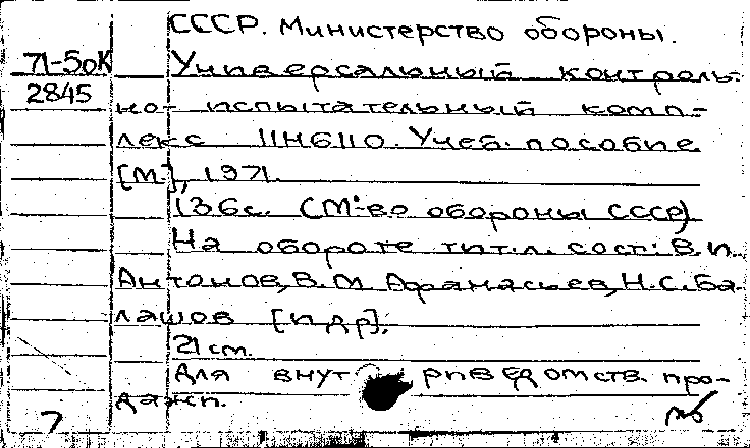 СССР. Министерство обороны.
71-50К Универсальный контроль-
2845 но-испытательный комп-
лекс 11Н6110. Учеб. пособие
[М.], 1971.
136с. (М-во обороны СССР)
На обороте тит.л. сост.: В.П.
Антонов, В.М. Афанасьев, Н.С. Ба-
лашов [и др].
21 см.
Для внутриведомств. про-
дажи.
7